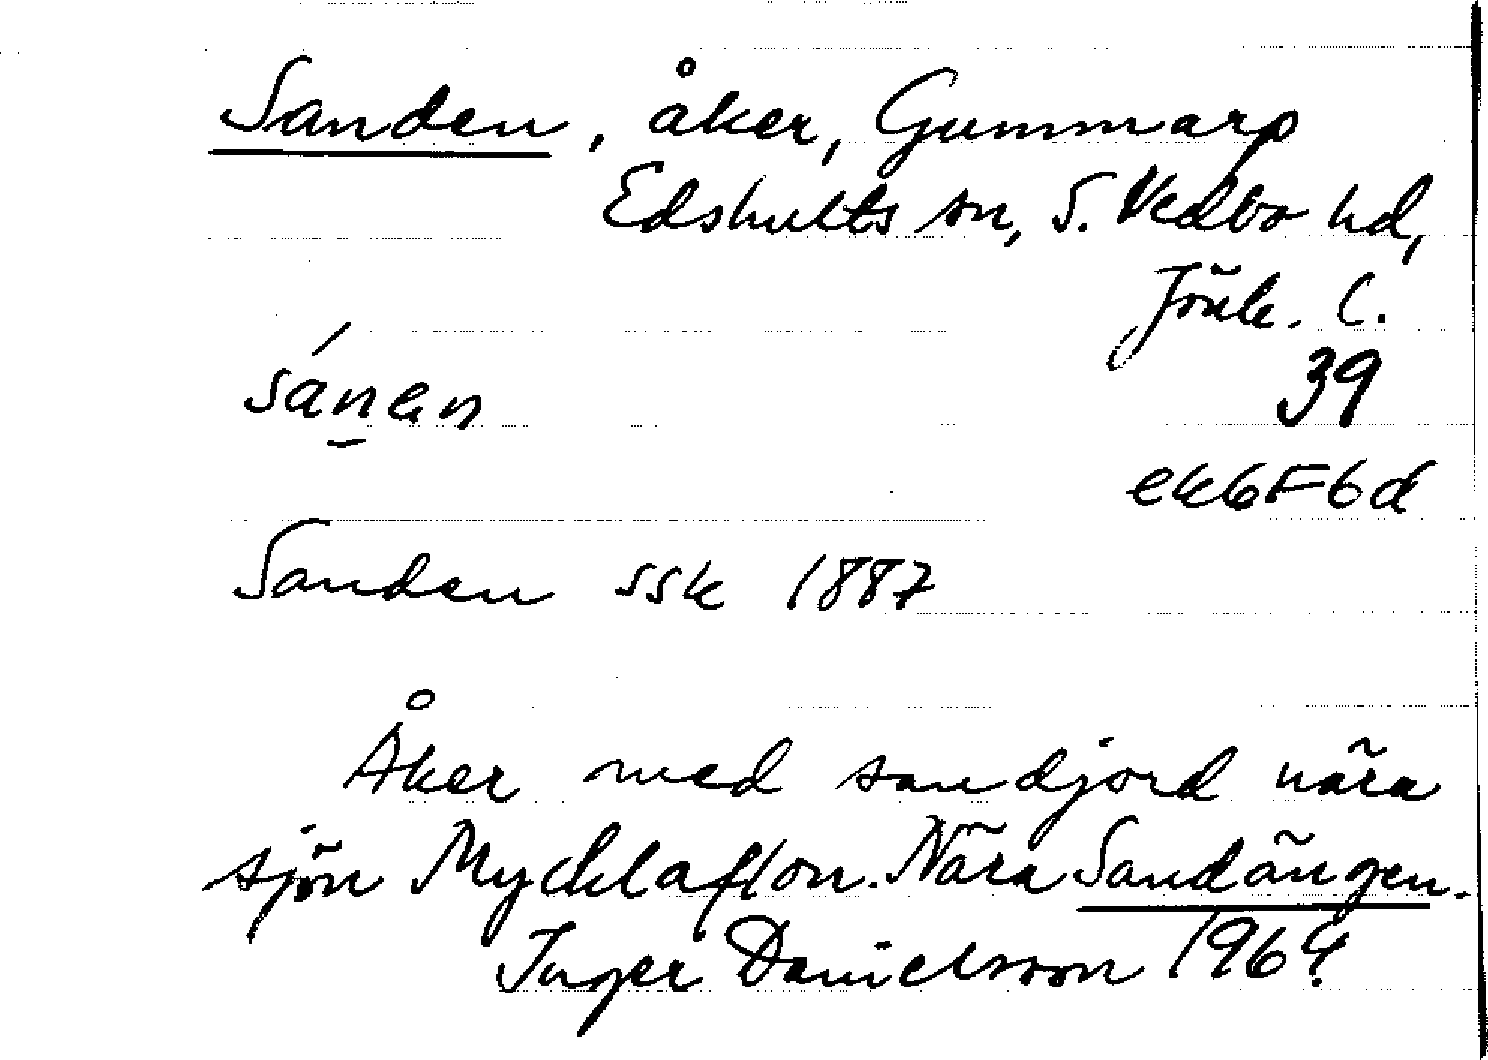 Sanden, åker, Gummarp
Edshults sn, S. Vedbo hd,
Jönk. l.
sánen
39
ek6F6d
Sanden ssk 1887
Åker med sandjord nära
sjön Mycklaflon. Nära Sandängen.
Inger Danielsson 1964